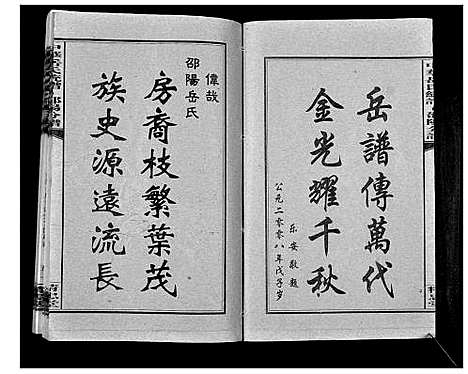 岳譜傳萬代
金光耀千秋
乐安敬題
公元二零零八年戊子岁
偉哉
邵陽岳氏
房裔枝繁葉茂
族史源遠流長